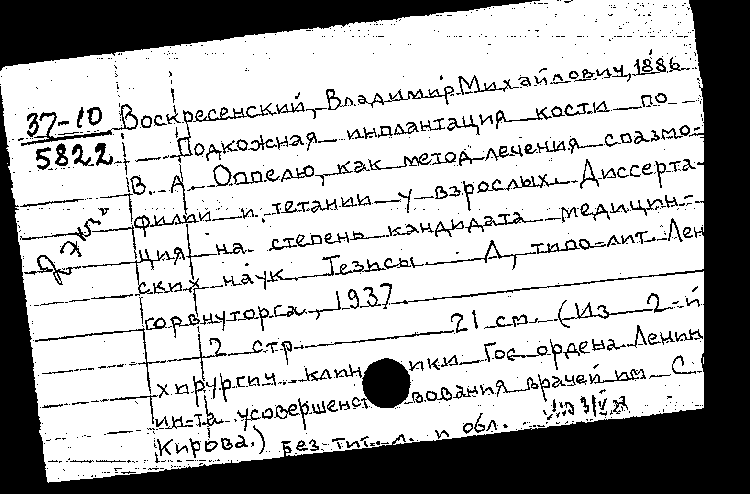 37-10
5822
2 экз.
Воскресенский, Владимир Михайлович, 1886
Подкожная имплантация кости по
В. А. Оппелю, как метод лечения спазмо-
филии и тетании у взрослых. Диссерта-
ция на степень кандидата медицин-
ских наук. Тезисы. Л, типо-лит. Лен
горвнуторга, 1937.
2 стр. 21 см. (Из 2-й
хирургич. клиники Гос ордена Ленин
ин-та усовершенствования врачей им С.
Кирова.) Без тит. л. и обл.